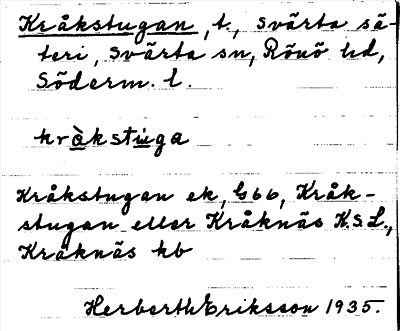 Kråkstugan, t., Svärta sä-
teri, Svärta sn, Rönö hd,
Söderm. l.
kråkstuga
Kråkstugan ek, G66, Kråk-
stugan eller Kråknäs K.S.L.,
Kråknäs kb
Herberth Eriksson 1935.